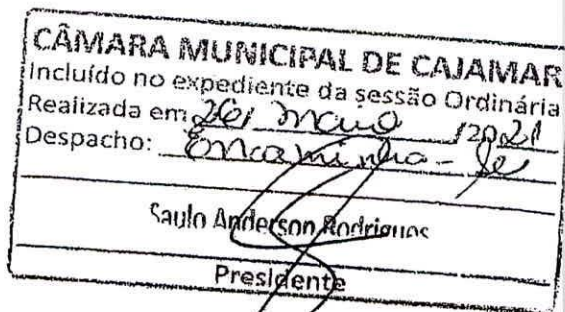 CÂMARA MUNICIPAL DE CAJAMAR
Incluído no expediente da sessão Ordinária
Realizada em 26/ maio /2021
Despacho: Encaminha-se
Saulo Anderson Rodrigues
Presidente